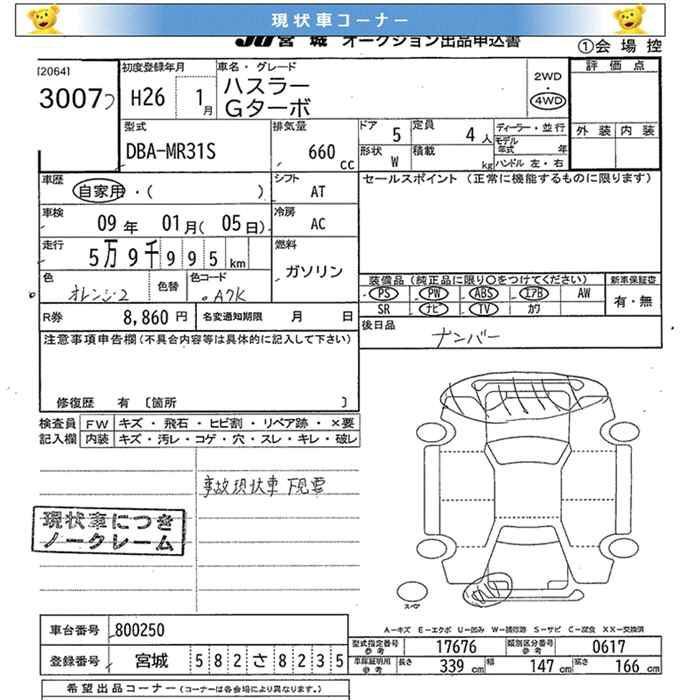 現状車コーナー
JU 宮城 オークション出品申込書
①会場控
[2064]
30077
初度登録年月
H26 1月
車名・グレード
ハスラー
Gターボ
2WD
・
4WD
評価点
外装 内装
型式
DBA-MR31S
排気量
660 cc
ドア 5
定員 4人
形状 W
積載 kg
ディーラー・並行
モデル年式 年
ハンドル 左・右
車歴
自家用・( )
シフト
AT
セールスポイント (正常に機能するものに限ります)
車検
09年 01月(05日)
冷房
AC
走行
5万9千995km
燃料
ガソリン
色
オレンジ2
色替
色コード
A7K
装備品 (純正品に限り○をつけてください)
新車保証書
PS PW ABS エアB AW
SR ナビ TV カワ
有・無
R券 8,860円
名変通知期限 月 日
後日品
ナンバー
注意事項申告欄 (不具合内容等は具体的に記入して下さい)
修復歴 有 〔箇所 〕
検査員記入欄
FW キズ・飛石・ヒビ割・リペア跡・×要
内装 キズ・汚レ・コゲ・穴・スレ・キレ・破レ
事故現状車 下見要
現状車につき
ノークレーム
スペア
A－キズ E－エクボ U－凹み W－補修跡 S－サビ C－腐食 XX－交換済
車台番号 800250
型式指定番号 17676
類別区分番号 0617
登録番号 宮城 582さ8235
車庫証明用参考
長さ 339cm
幅 147cm
高さ 166cm
希望出品コーナー (コーナーは各会場により異なります。)